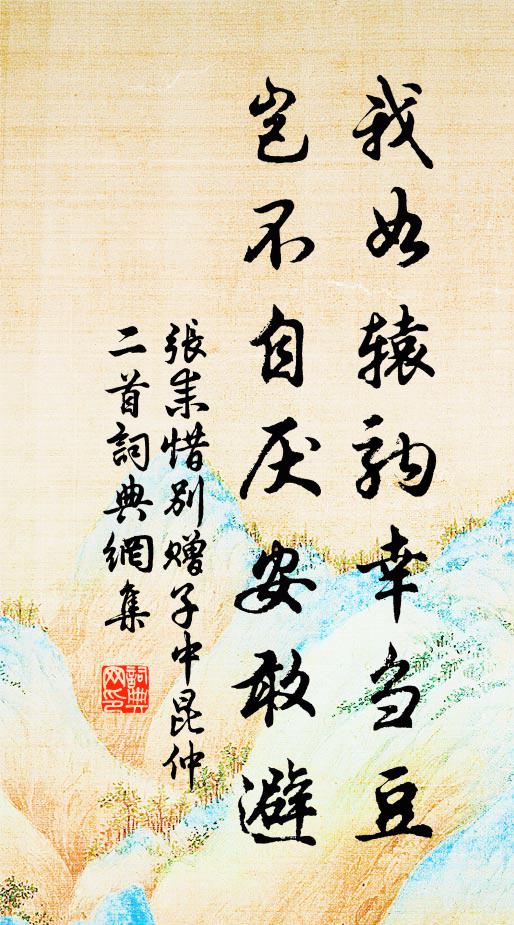 我如辕驹幸刍豆
岂不自厌安敢避
張耒惜别赠子中昆仲
二首詞典網集
詞典网印